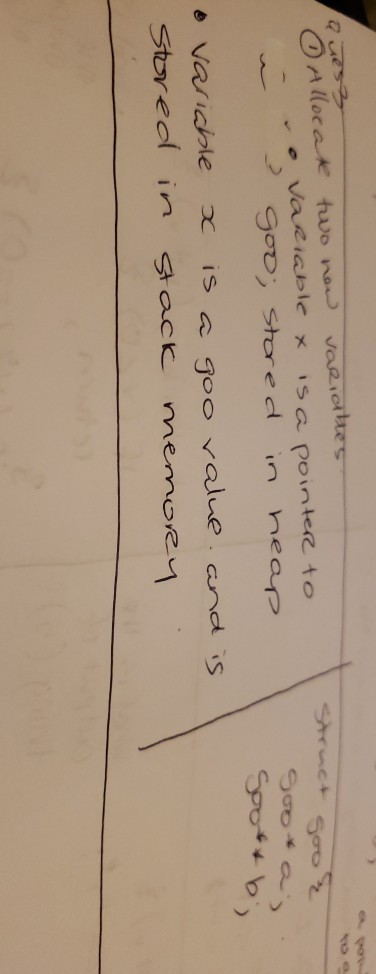 Ques
① Allocate two new variables
• variable x is a pointer to
goo; stored in heap
• variable x is a goo value. and is
stored in stack memory
struct goo {
goo* a;
goo** b;